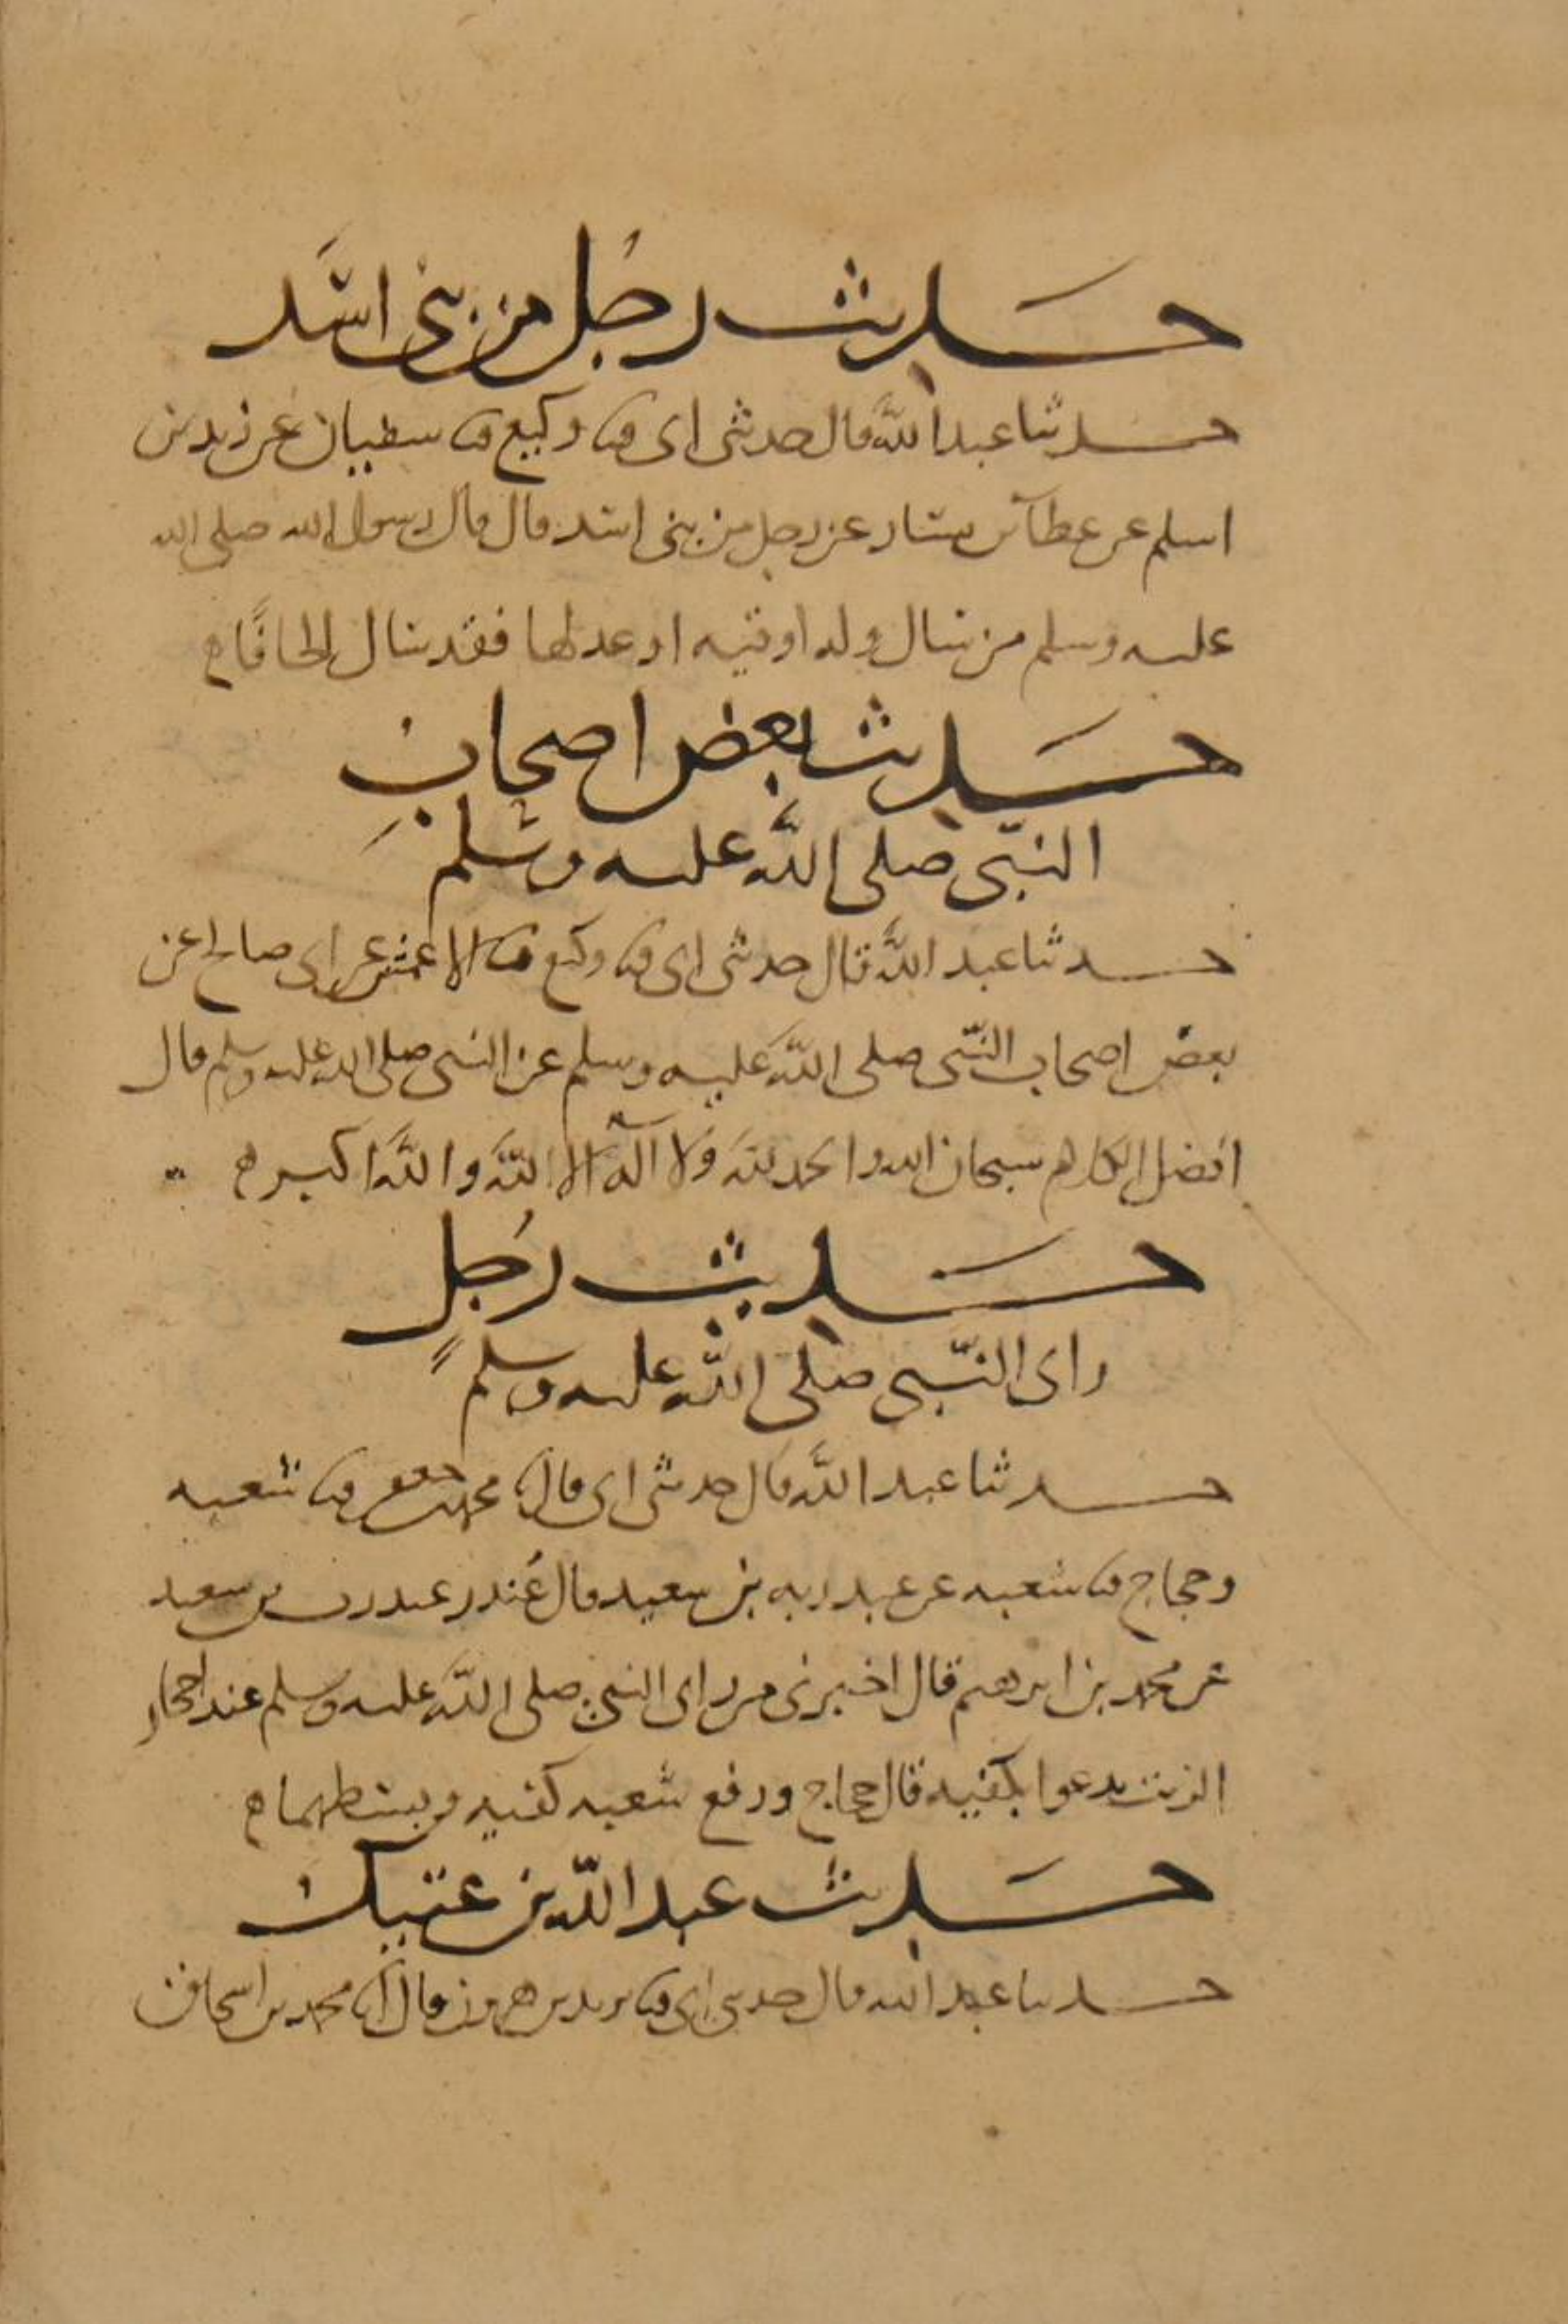 حديث رجل من بني اسد
حدثنا عبد الله قال حدثني ابي ثنا وكيع ثنا سفيان عن زيد بن
اسلم عن عطآ بن يسار عن رجل من بني اسد قال قال رسول الله صلى الله
عليه وسلم من سال وله اوقيه او عدلها فقد سال الحافًا ه
حديث بعض اصحاب
النبي صلى الله عليه وسلم
حدثنا عبد الله قال حدثني ابي ثنا وكيع ثنا الاعمش عن ابي صالح عن
بعض اصحاب النبي صلى الله عليه وسلم عن النبي صلى الله عليه وسلم قال
افضل الكلام سبحان الله والحمد لله ولا اله الا الله والله اكبر ه
حديث رجلٍ
راى النبي صلى الله عليه وسلم
حدثنا عبد الله قال حدثني ابي قال ثنا محمد بن جعفر ثنا شعبه
وحجاج ثنا شعبه عن عبد ربه بن سعيد قال غُندر عبد ربه بن سعيد
عن محمد بن ابرهيم قال اخبرني من راى النبي صلى الله عليه وسلم عند احجار
الزيت يدعوا بكفيه قال حجاج ورفع شعبه كفيه وبسطهما ه
حديث عبد الله بن عتيك
حدثنا عبد الله قال حدثني ابي ثنا يزيد بن هرون قال انا محمد بن اسحاق